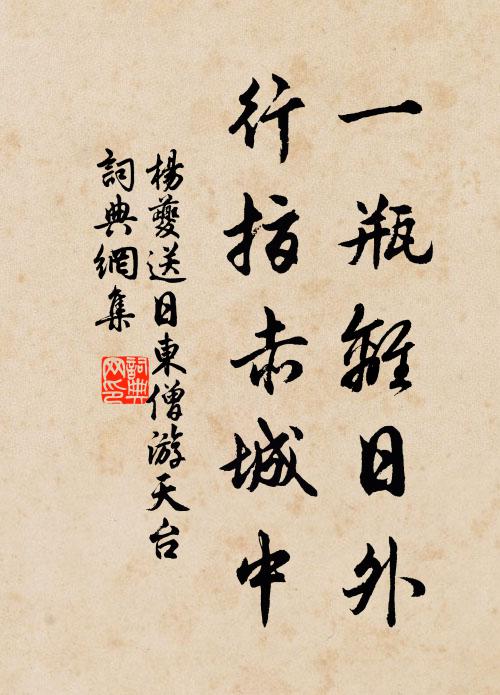 一瓶離日外
行指赤城中
楊夔送日東僧游天台
詞典網集
詞典
网印